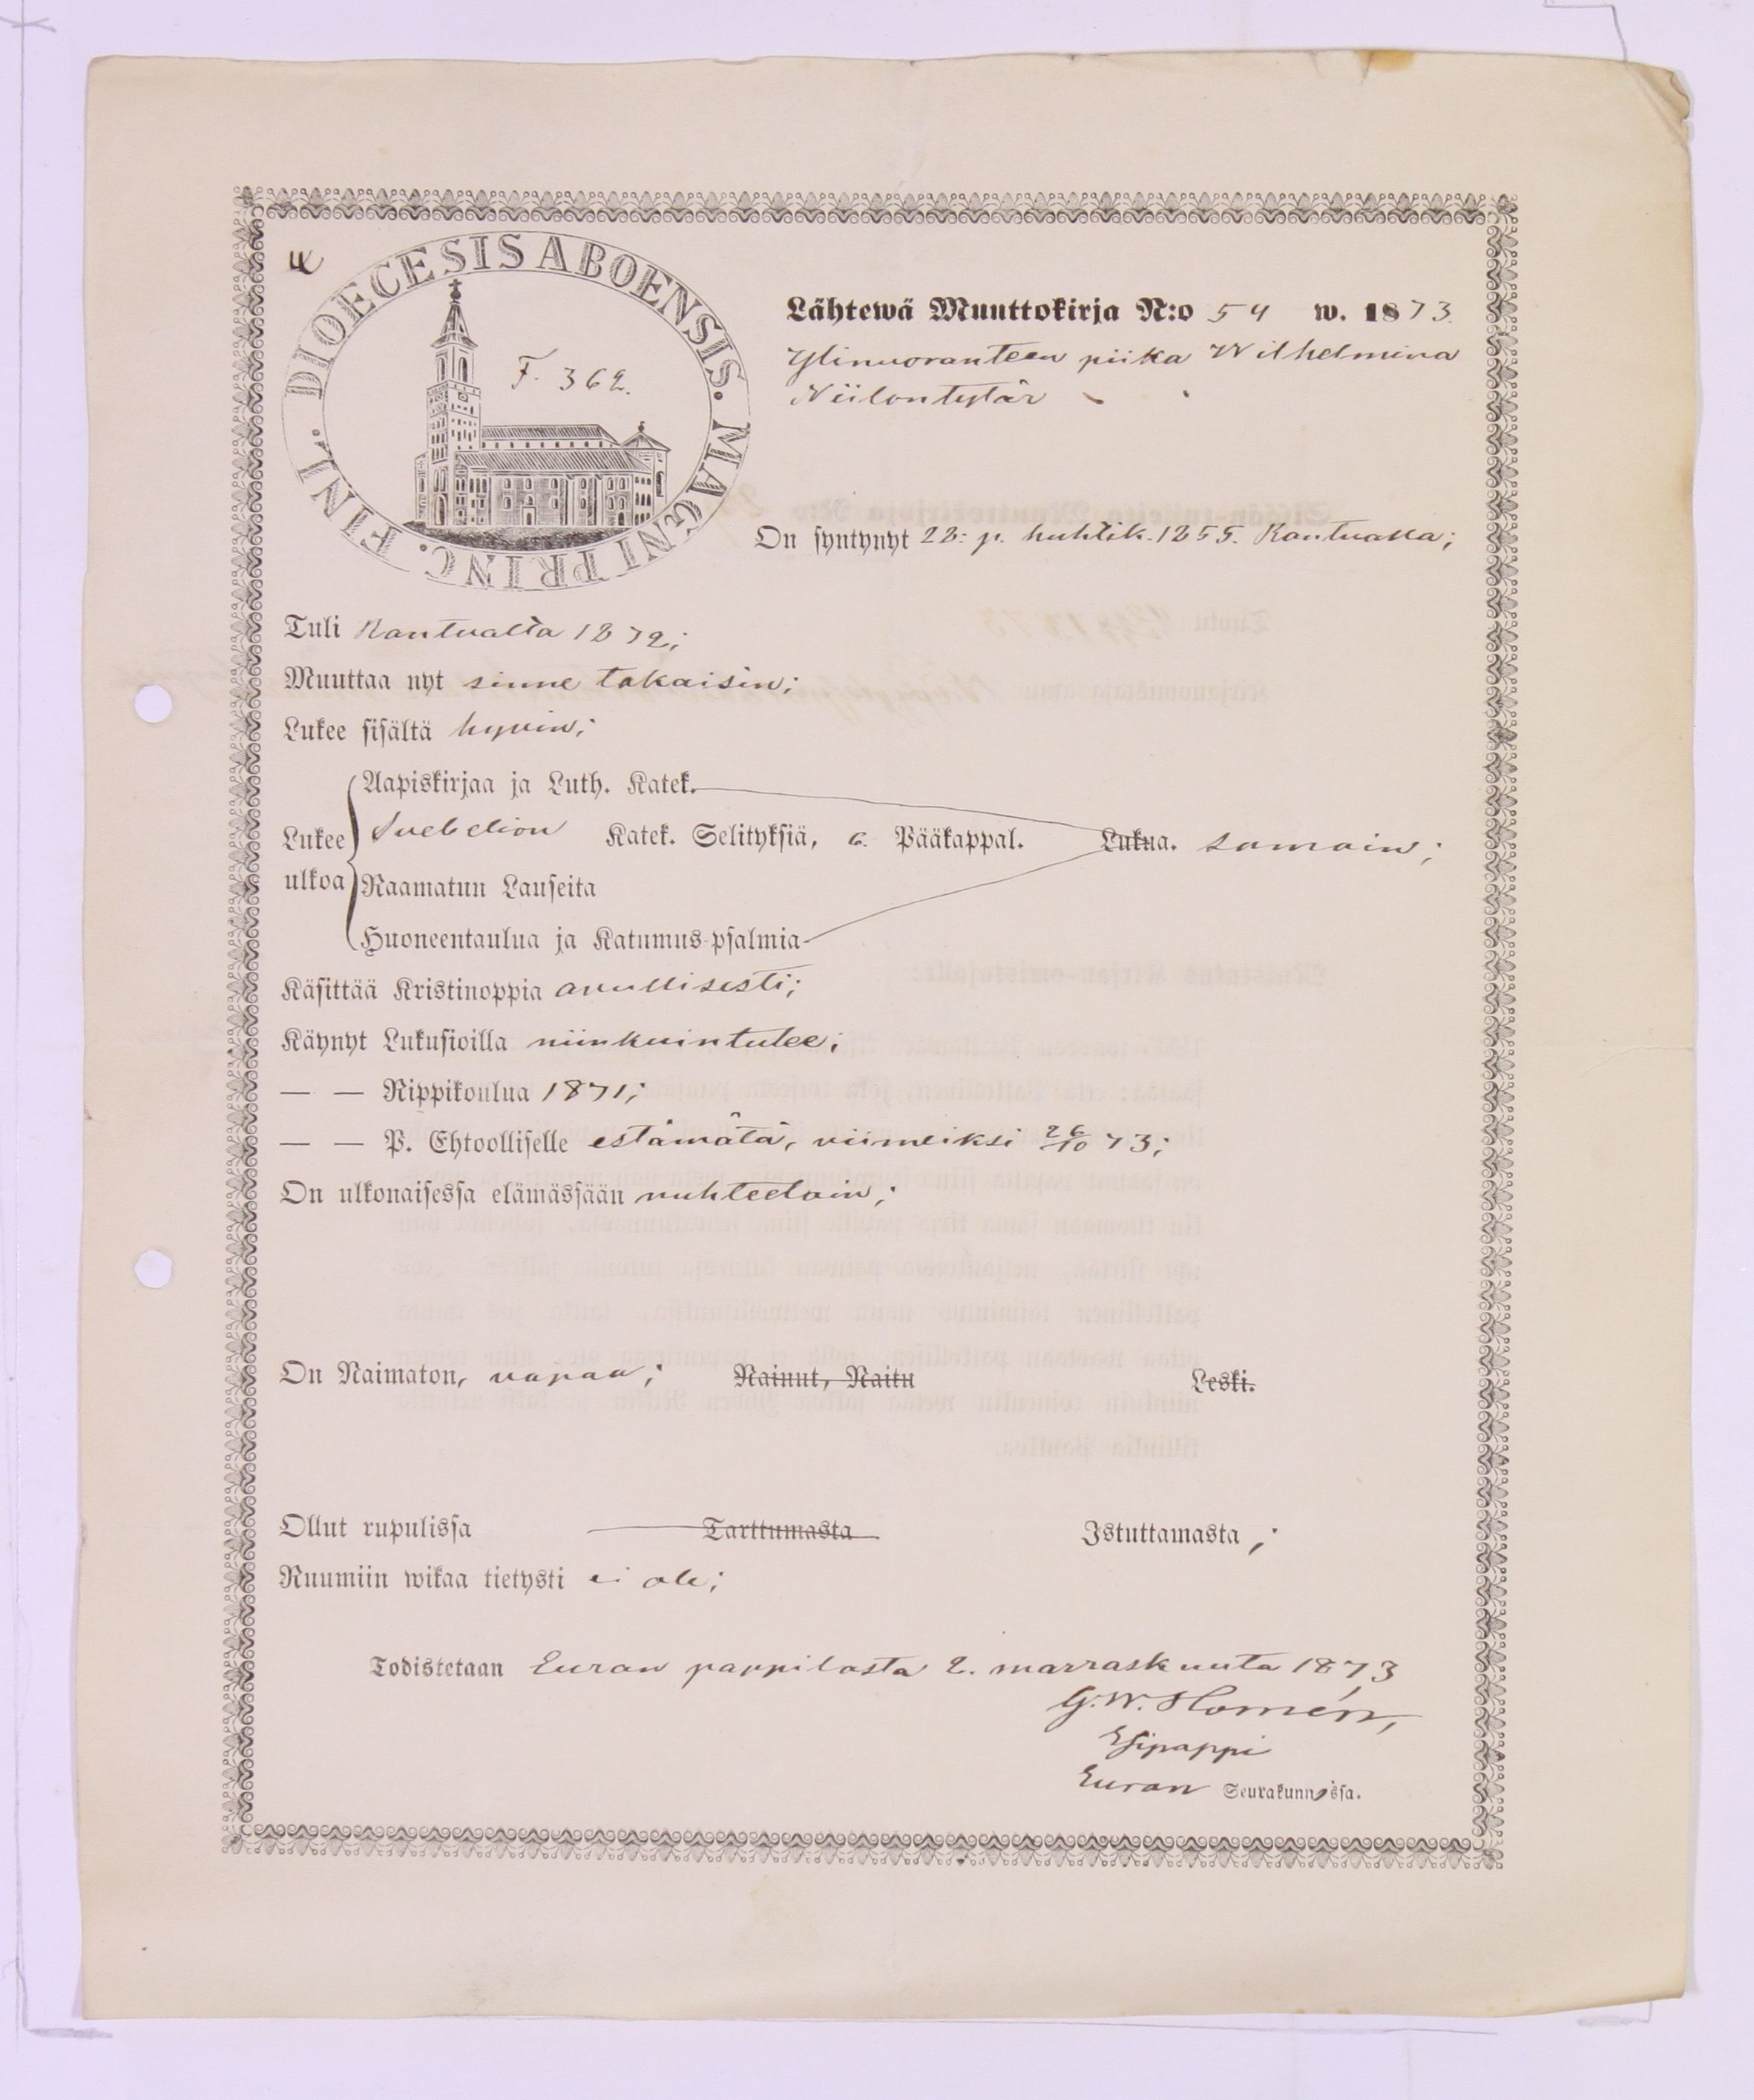 DIOECESIS ABOENSIS. MAGNI PRINC. FINL.
F. 362.
Lähtewä Muuttokirja N:o 54 w. 1873.
Ylinuoranteen piika Wilhelmina
Niilontytär
On syntynyt 22: p. huhtik. 1855. Kantualla;
Tuli Kantualta 1872;
Muuttaa nyt sinne takaisin;
Lukee sisältä hyvin;
Aapiskirjaa ja Luth. Katek.
Lukee Svebelion Katek. Selityksiä, 6. Pääkappal. Lukua. samoin;
ulkoa Raamatun Lauseita
Huoneentaulua ja Katumus-psalmia
Käsittää Kristinoppia avullisesti;
Käynyt Lukusioilla niinkuin tulee;
— — Rippikoulua 1871;
— — P. Ehtoolliselle estämätä, viimeiksi 26/10 73;
On ulkonaisessa elämässään nuhteetoin;
On Naimaton, vapaa; Nainut, Naitu Leski.
Ollut rupulissa Tarttumasta Istuttamasta;
Ruumiin wikaa tietysti ei ole;
Todistetaan Euran pappilasta 2. marraskuuta 1873
G. W. Homén,
Esipappi
Euran Seurakunnassa.